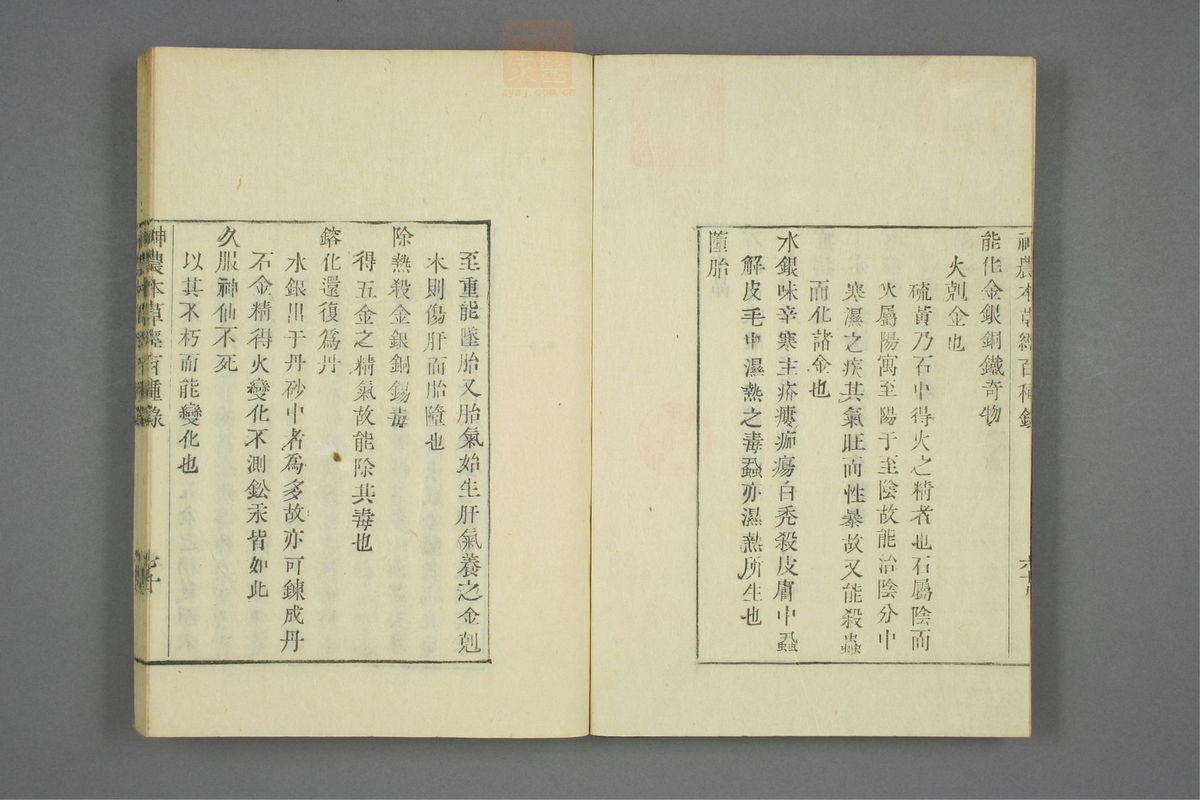 神農本草經百種錄
能化金銀銅鐵奇物
火剋金也
硫黃乃石中得火之精者也石屬陰而
火屬陽寓至陽于至陰故能治陰分中
寒濕之疾其氣旺而性暴故又能殺蟲
而化諸金也
水銀味辛寒主疥瘻痂瘍白禿殺皮膚中蝨
解皮毛中濕熱之毒蝨亦濕熱所生也
墮胎
至重能墜胎又胎氣始生肝氣養之金剋
木則傷肝而胎墮也
除熱殺金銀銅錫毒
得五金之精氣故能除其毒也
鎔化還復爲丹
水銀出于丹砂中者爲多故亦可鍊成丹
石金精得火變化不測鉛汞皆如此
久服神仙不死
以其不朽而能變化也
神農本草經百種錄
zysj.com.cn